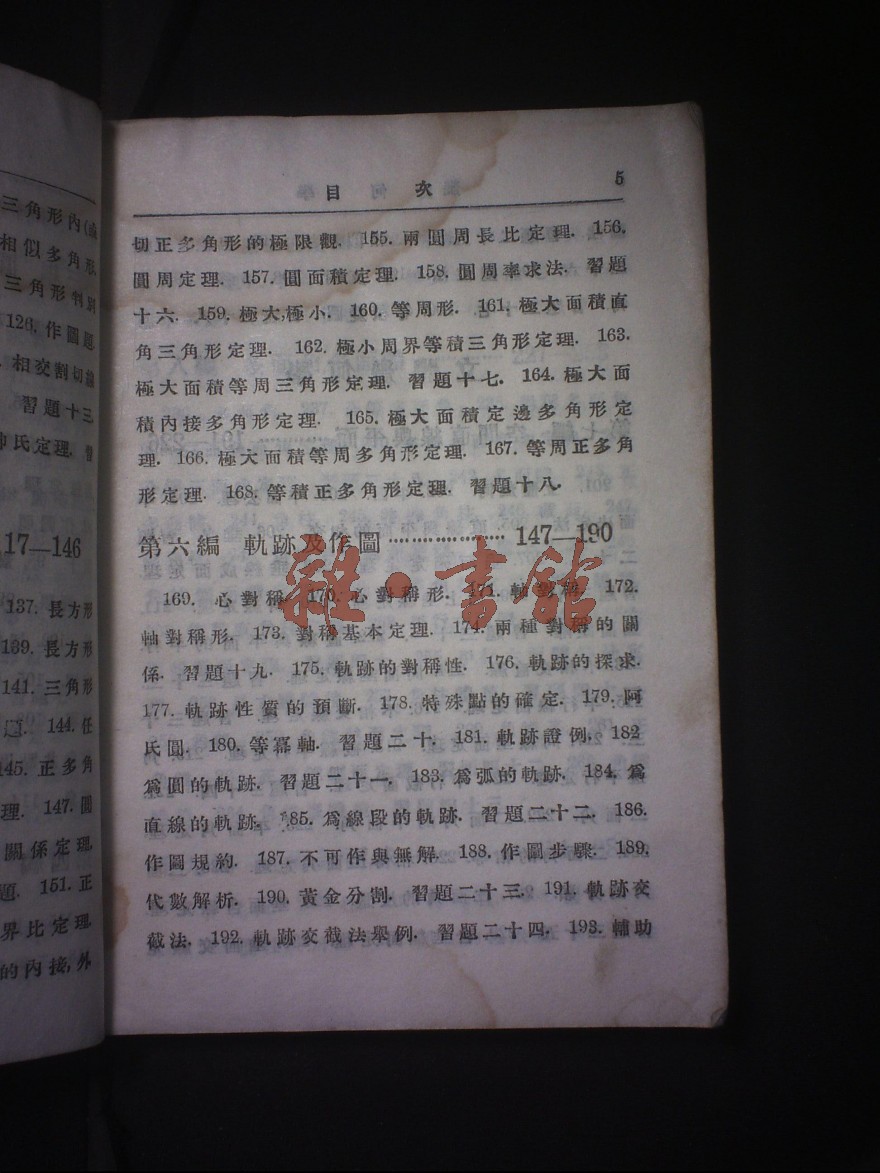 三角形內
相似多角形
三角形判別
126. 作圖題
相交割切線
習題十三
氏定理.
17—146
137. 長方形
139. 長方形
141. 三角形
題. 144. 任
145. 正多角
理. 147. 圓
關係定理
題. 151. 正
界比定理
的內接,外
目 次 5
切正多角形的極限觀. 155. 兩圓周長比定理. 156.
圓周定理. 157. 圓面積定理. 158. 圓周率求法. 習題
十六. 159. 極大,極小. 160. 等周形. 161. 極大面積直
角三角形定理. 162. 極小周界等積三角形定理. 163.
極大面積等周三角形定理. 習題十七. 164. 極大面
積內接多角形定理. 165. 極大面積定邊多角形定
理. 166. 極大面積等周多角形定理. 167. 等周正多角
形定理. 168. 等積正多角形定理. 習題十八.
第六編 軌跡及作圖 ‥‥‥‥‥‥‥ 147—190
169. 心對稱. 170. 心對稱形. 171. 軸對稱. 172.
軸對稱形. 173. 對稱基本定理. 174. 兩種對稱的關
係. 習題十九. 175. 軌跡的對稱性. 176. 軌跡的探求.
177. 軌跡性質的預斷. 178. 特殊點的確定. 179. 阿
氏圓. 180. 等冪軸. 習題二十. 181. 軌跡證例. 182
爲圓的軌跡. 習題二十一. 183. 爲弧的軌跡. 184. 爲
直線的軌跡. 185. 爲線段的軌跡. 習題二十二. 186.
作圖規約. 187. 不可作與無解. 188. 作圖步驟. 189.
代數解析. 190. 黃金分割. 習題二十三. 191. 軌跡交
截法. 192. 軌跡交截法舉例. 習題二十四. 193. 輔助
雜·書館